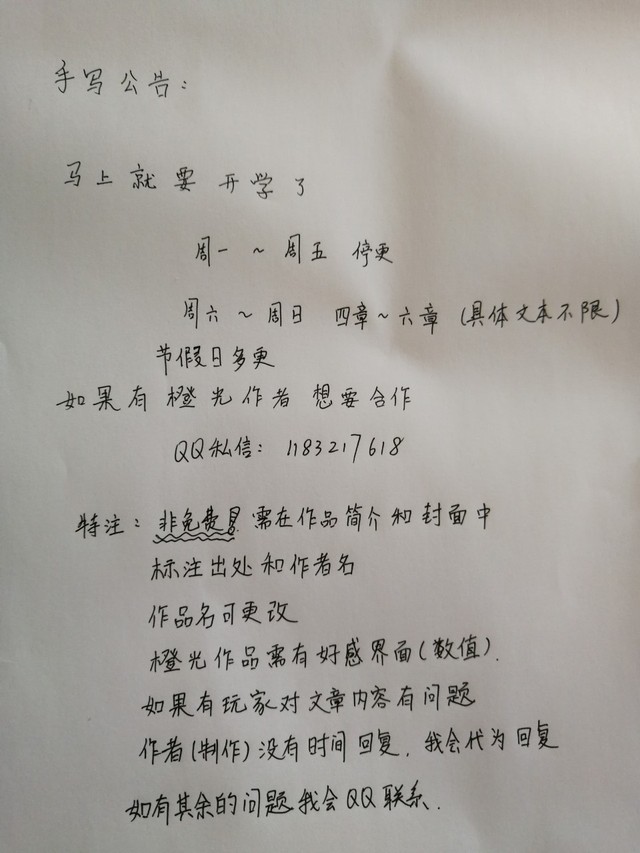 手写公告：
马上就要开学了
周一～周五 停更
周六～周日 四章～六章（具体文本不限）
节假日多更
如果有橙光作者想要合作
QQ私信：1183217618
特注：非免费 需在作品简介和封面中
标注出处和作者名
作品名可更改
橙光作品需有好感界面（数值）.
如果有玩家对文章内容有问题
作者（制作）没有时间回复，我会代为回复
如有其余的问题我会QQ联系.